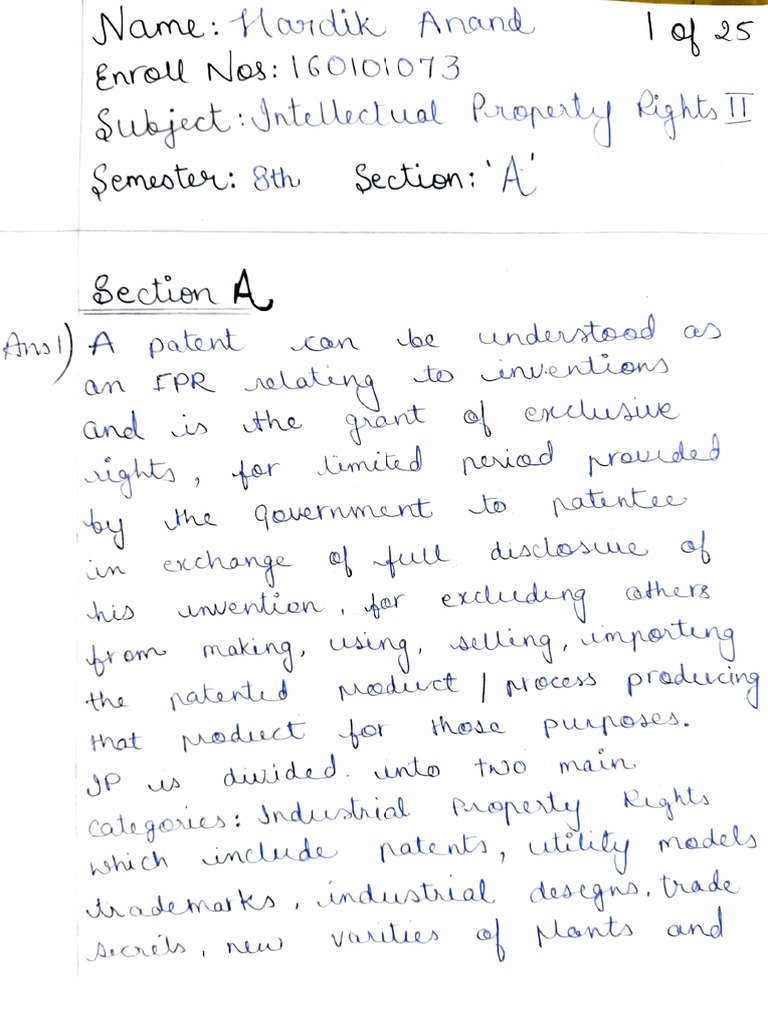 Name: Hardik Anand 1 of 25
Enroll Nos: 160101073
Subject: Intellectual Property Rights II
Semester: 8th Section: 'A'
Section A
Ans 1) A patent can be understood as
an IPR relating to inventions
and is the grant of exclusive
rights, for limited period provided
by the Government to patentee
in exchange of full disclosure of
his invention, for excluding others
from making, using, selling, importing
the patented product / process producing
that product for those purposes.
IP is divided into two main
categories: Industrial Property Rights
which include patents, utility models
trademarks, industrial designs, trade
secrets, new varities of plants and